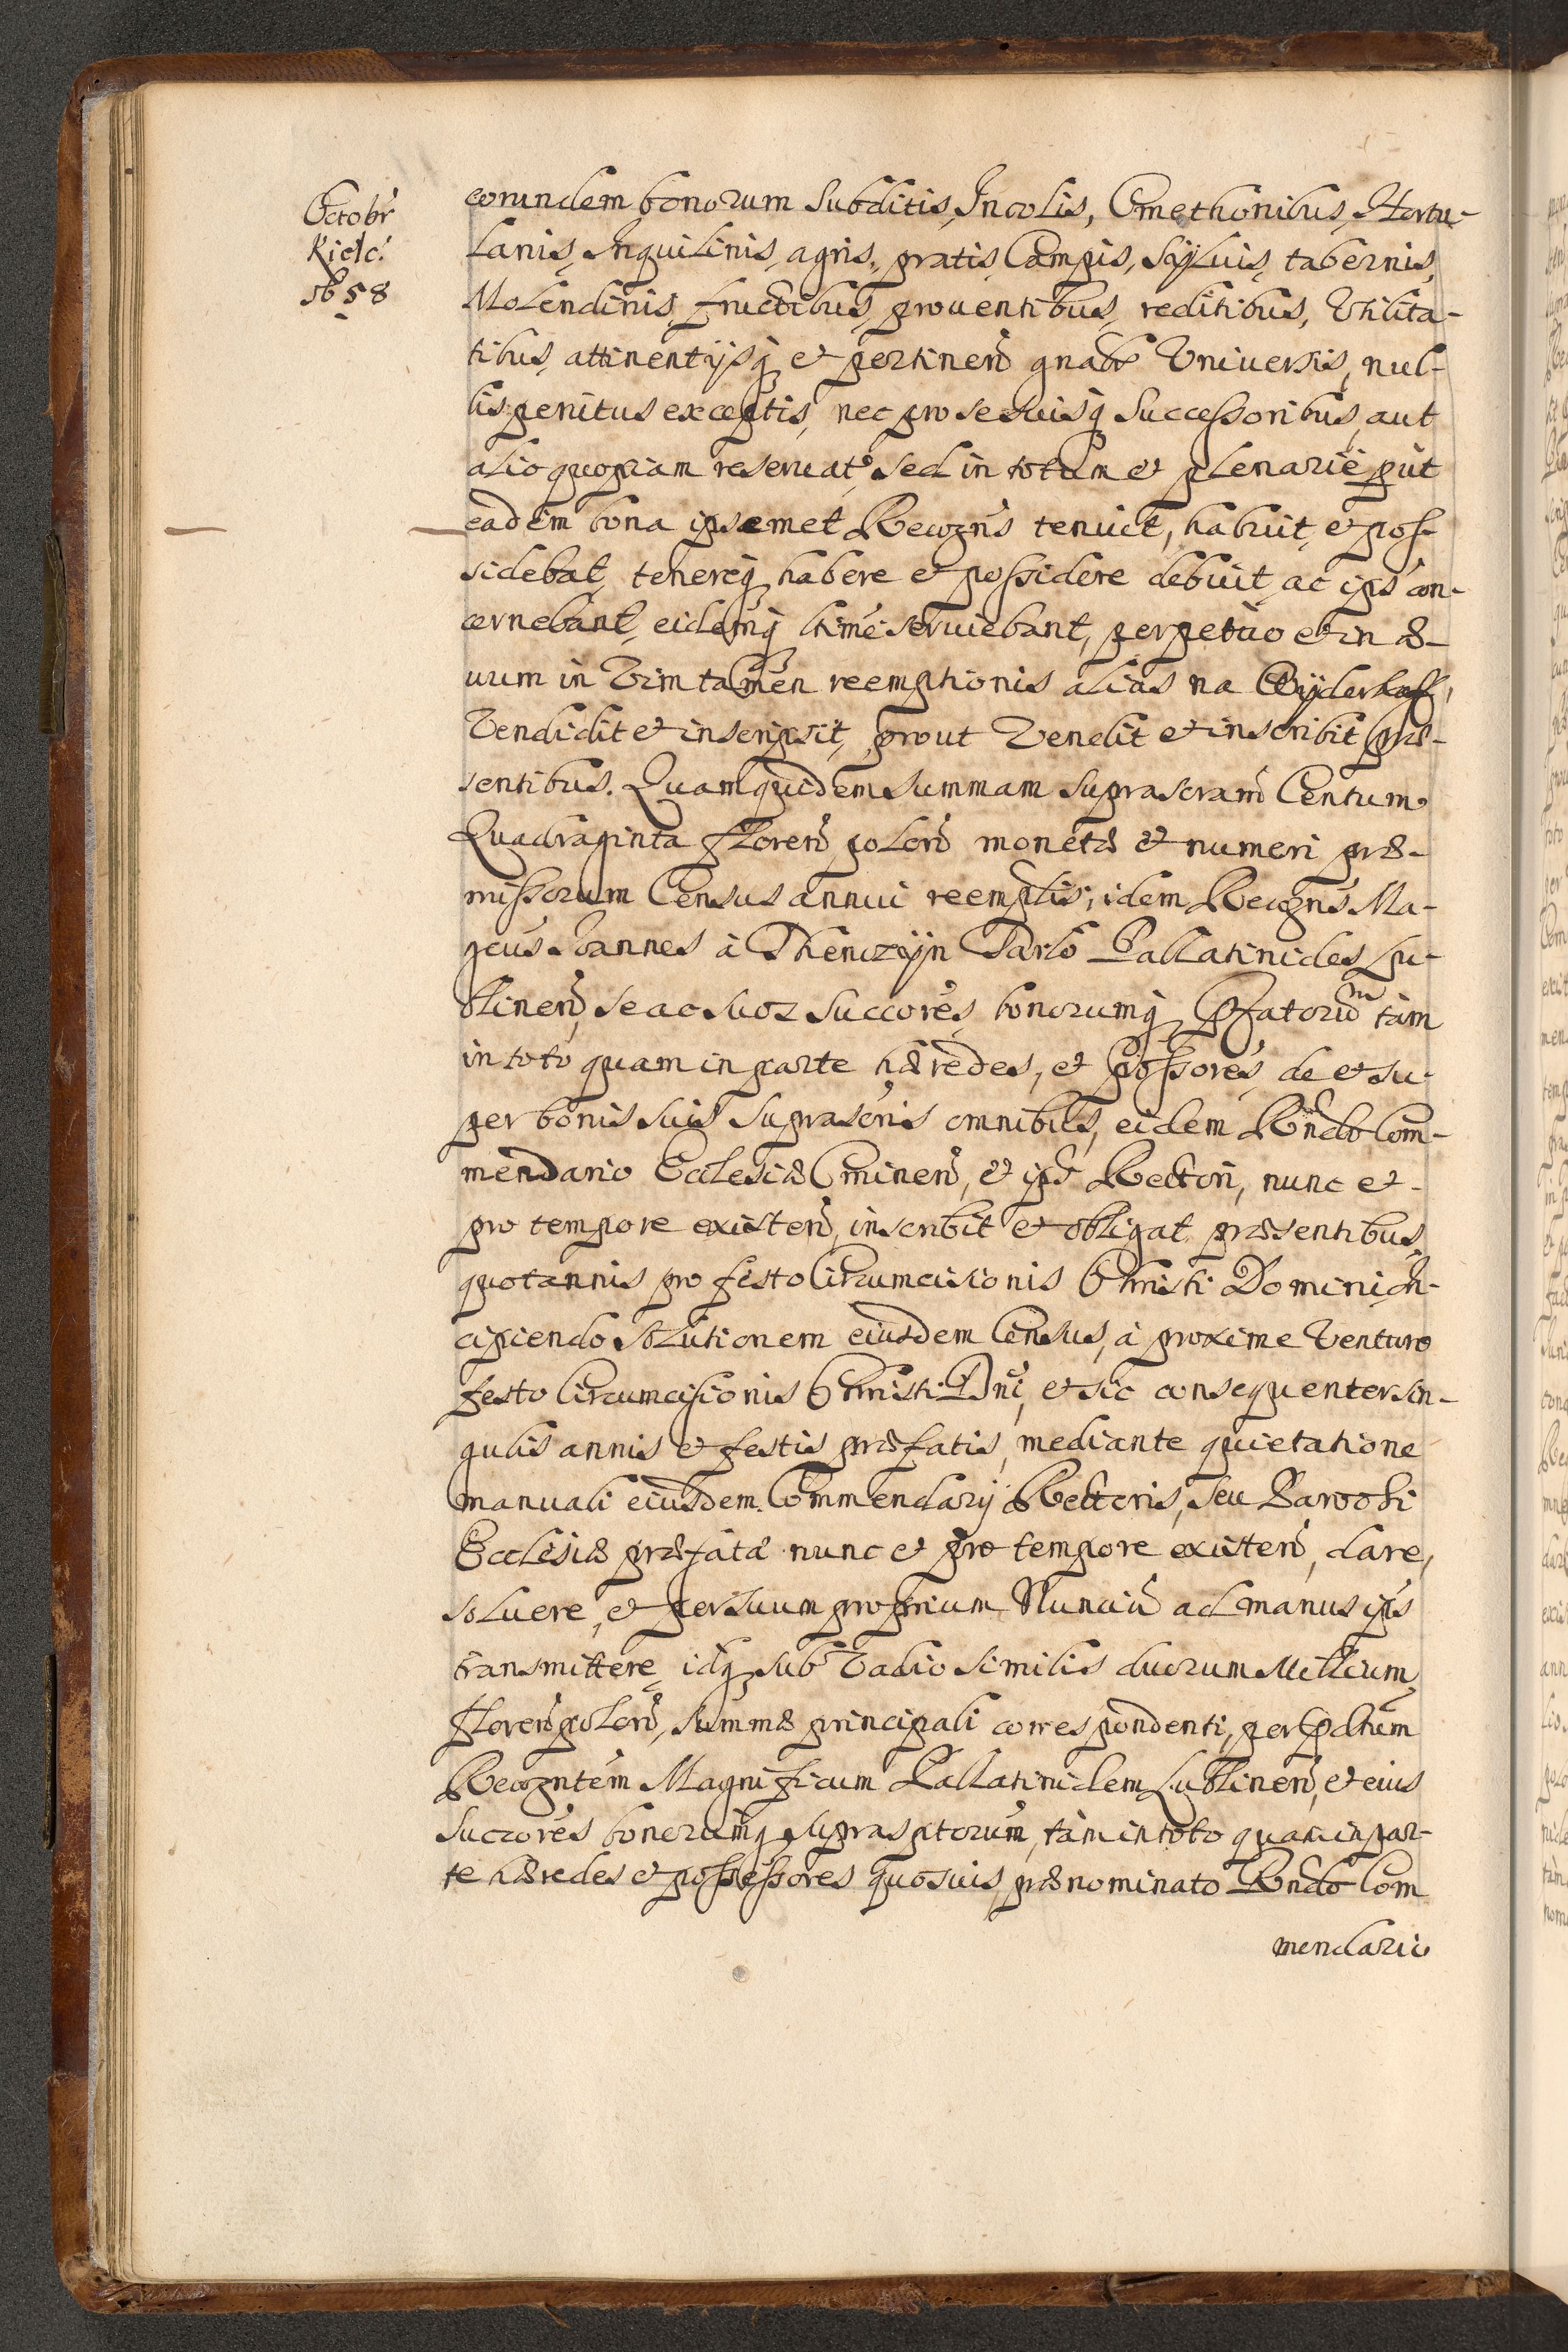 Octobr
Kielc.
1658
eorundem bonorum Subditis, Incolis, Cmethonibus, Hortu-
lanis, Inquilinis, agris, pratis, Campis, Sijluis, tabernis,
Molendinis, fructibus, prouentibus, reditibus, Vtilita-
tibus, attinentijsq et pertinen gnalr Vniuersis, nul-
lis penitus exceptis, nec pro se suisq Successoribus, aut
alio quopiam reseruat sed in totum et plenariè put
eadem bona ipsemet Recogns tenuit, habuit, et pos-
sidebat, tenereq habere et possidere debuit, ac ips con-
cernebant, eidemq ltime seruiebant, perpetuo et in æ-
uum in Vim tamen reemptionis alias na Wyderkaff,
Vendidit et inscripsit, prout Vendit et inscribit præ-
sentibus. Quamquidem summam suprascram Centum
Quadraginta floren polon monetæ et numeri præ-
missorum Census annui reemptlis, idem Recogns Ma-
gcus Ioannes à Thenczyn Tarlo Pallatinides Lu-
blinen, se ac suos succores, bonorumq Pfatorum tàm
in toto quam in parte hæredes, et possores de et su-
per bonis suis suprascris omnibus, eidem Rndo Com-
mendario Ecclesiæ Cminen, et ips Rectori, nunc et
pro tempore existen, inscribit et obligat præsentibus,
quotannis pro festo Circumcisionis Christi Domini, in-
cipiendo solutionem eiusdem Census, à proxime Venturo
festo Circumcisionis Christi Dni, et sic consequenter sin-
gulis annis et festis præfatis, mediante quietatione
manuali eiusdem Commendarij Rectoris, seu Parochi
Ecclesiæ præfatæ nunc et pro tempore existen, dare,
soluere, et per suum proprium Nunciu ad manus ips
transmittere, idq sub Vadio similis duorum Millium
floren polon, summæ principali correspondenti, per Pdtum
Recogntem Magnificum Pallatinidem Lublinen, et eius
succores bonorumq supraspctorum, tàm in toto quam in par-
te hæredes et possessores quosuis, prænominato Rndo Com
mendario